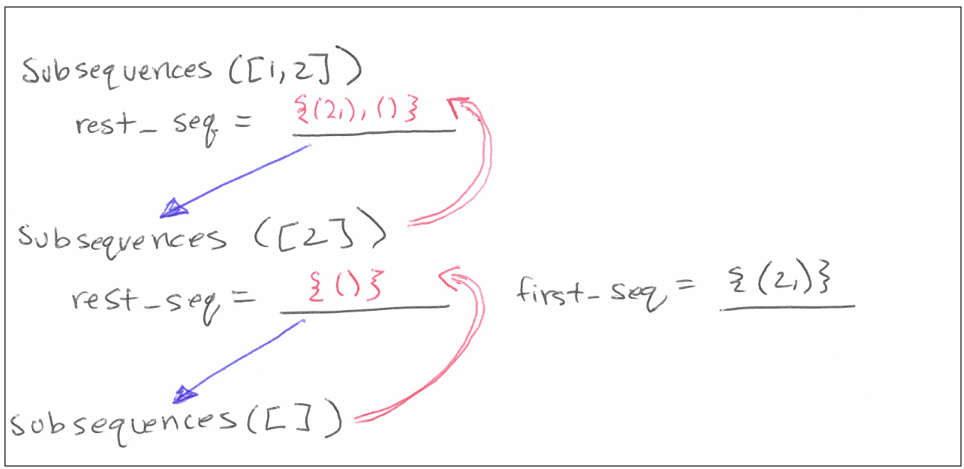 Subsequences ([1,2])
rest_seq = {(2,),()}
Subsequences ([2])
rest_seq = {()} first_seq = {(2,)}
subsequences([])